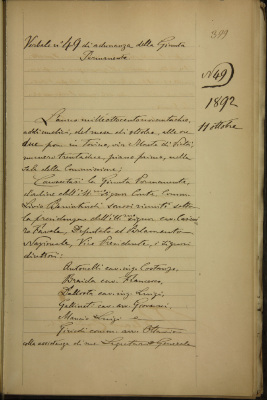 399
Verbale n° 49 di adunanza della Giunta
Permanente
N 49
1892
11 ottobre
L'anno milleottocentonovantadue,
addì undici del mese di ottobre, alle ore
due pom. in Torino, via Monte di Pietà,
numero trentadue, piano primo, nella
sala della Commissione;
Convocatasi la Giunta Permanente,
dall'Ill.mo Signor Conte Comm.
Livio si sono riuniti sotto
la presidenza dell'Ill.mo Signor cav. Casimi
ro Favale, Deputato al Parlamento
Nazionale, Vice Presidente, i signori
direttori:
Antonelli cav. ing. Costanzo,
Braida cav. Francesco,
cav. ing. Luigi,
cav. avv. Giovanni,
Mancio Luigi e
comm. avv.
alla assistenza di me Segretario Generale